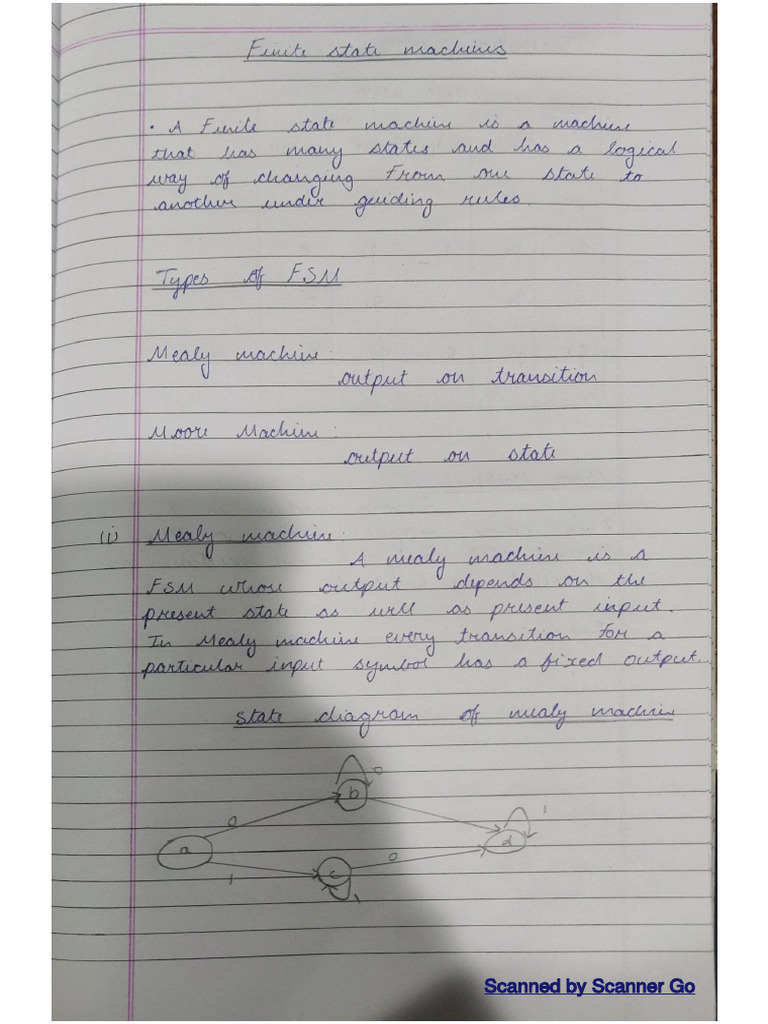 Finite state machines
• A Finite state machine is a machine
that has many states and has a logical
way of changing from one state to
another under guiding rules.
Types of FSM
Mealy machine:
output on transition
Moore Machine:
output on state
(i) Mealy machine:
A mealy machine is a
FSM whose output depends on the
present state as well as present input.
In Mealy machine every transition for a
particular input symbol has a fixed output.
State diagram of mealy machine
0
b
0
1
a
d
0
c
1
1
Scanned by Scanner Go